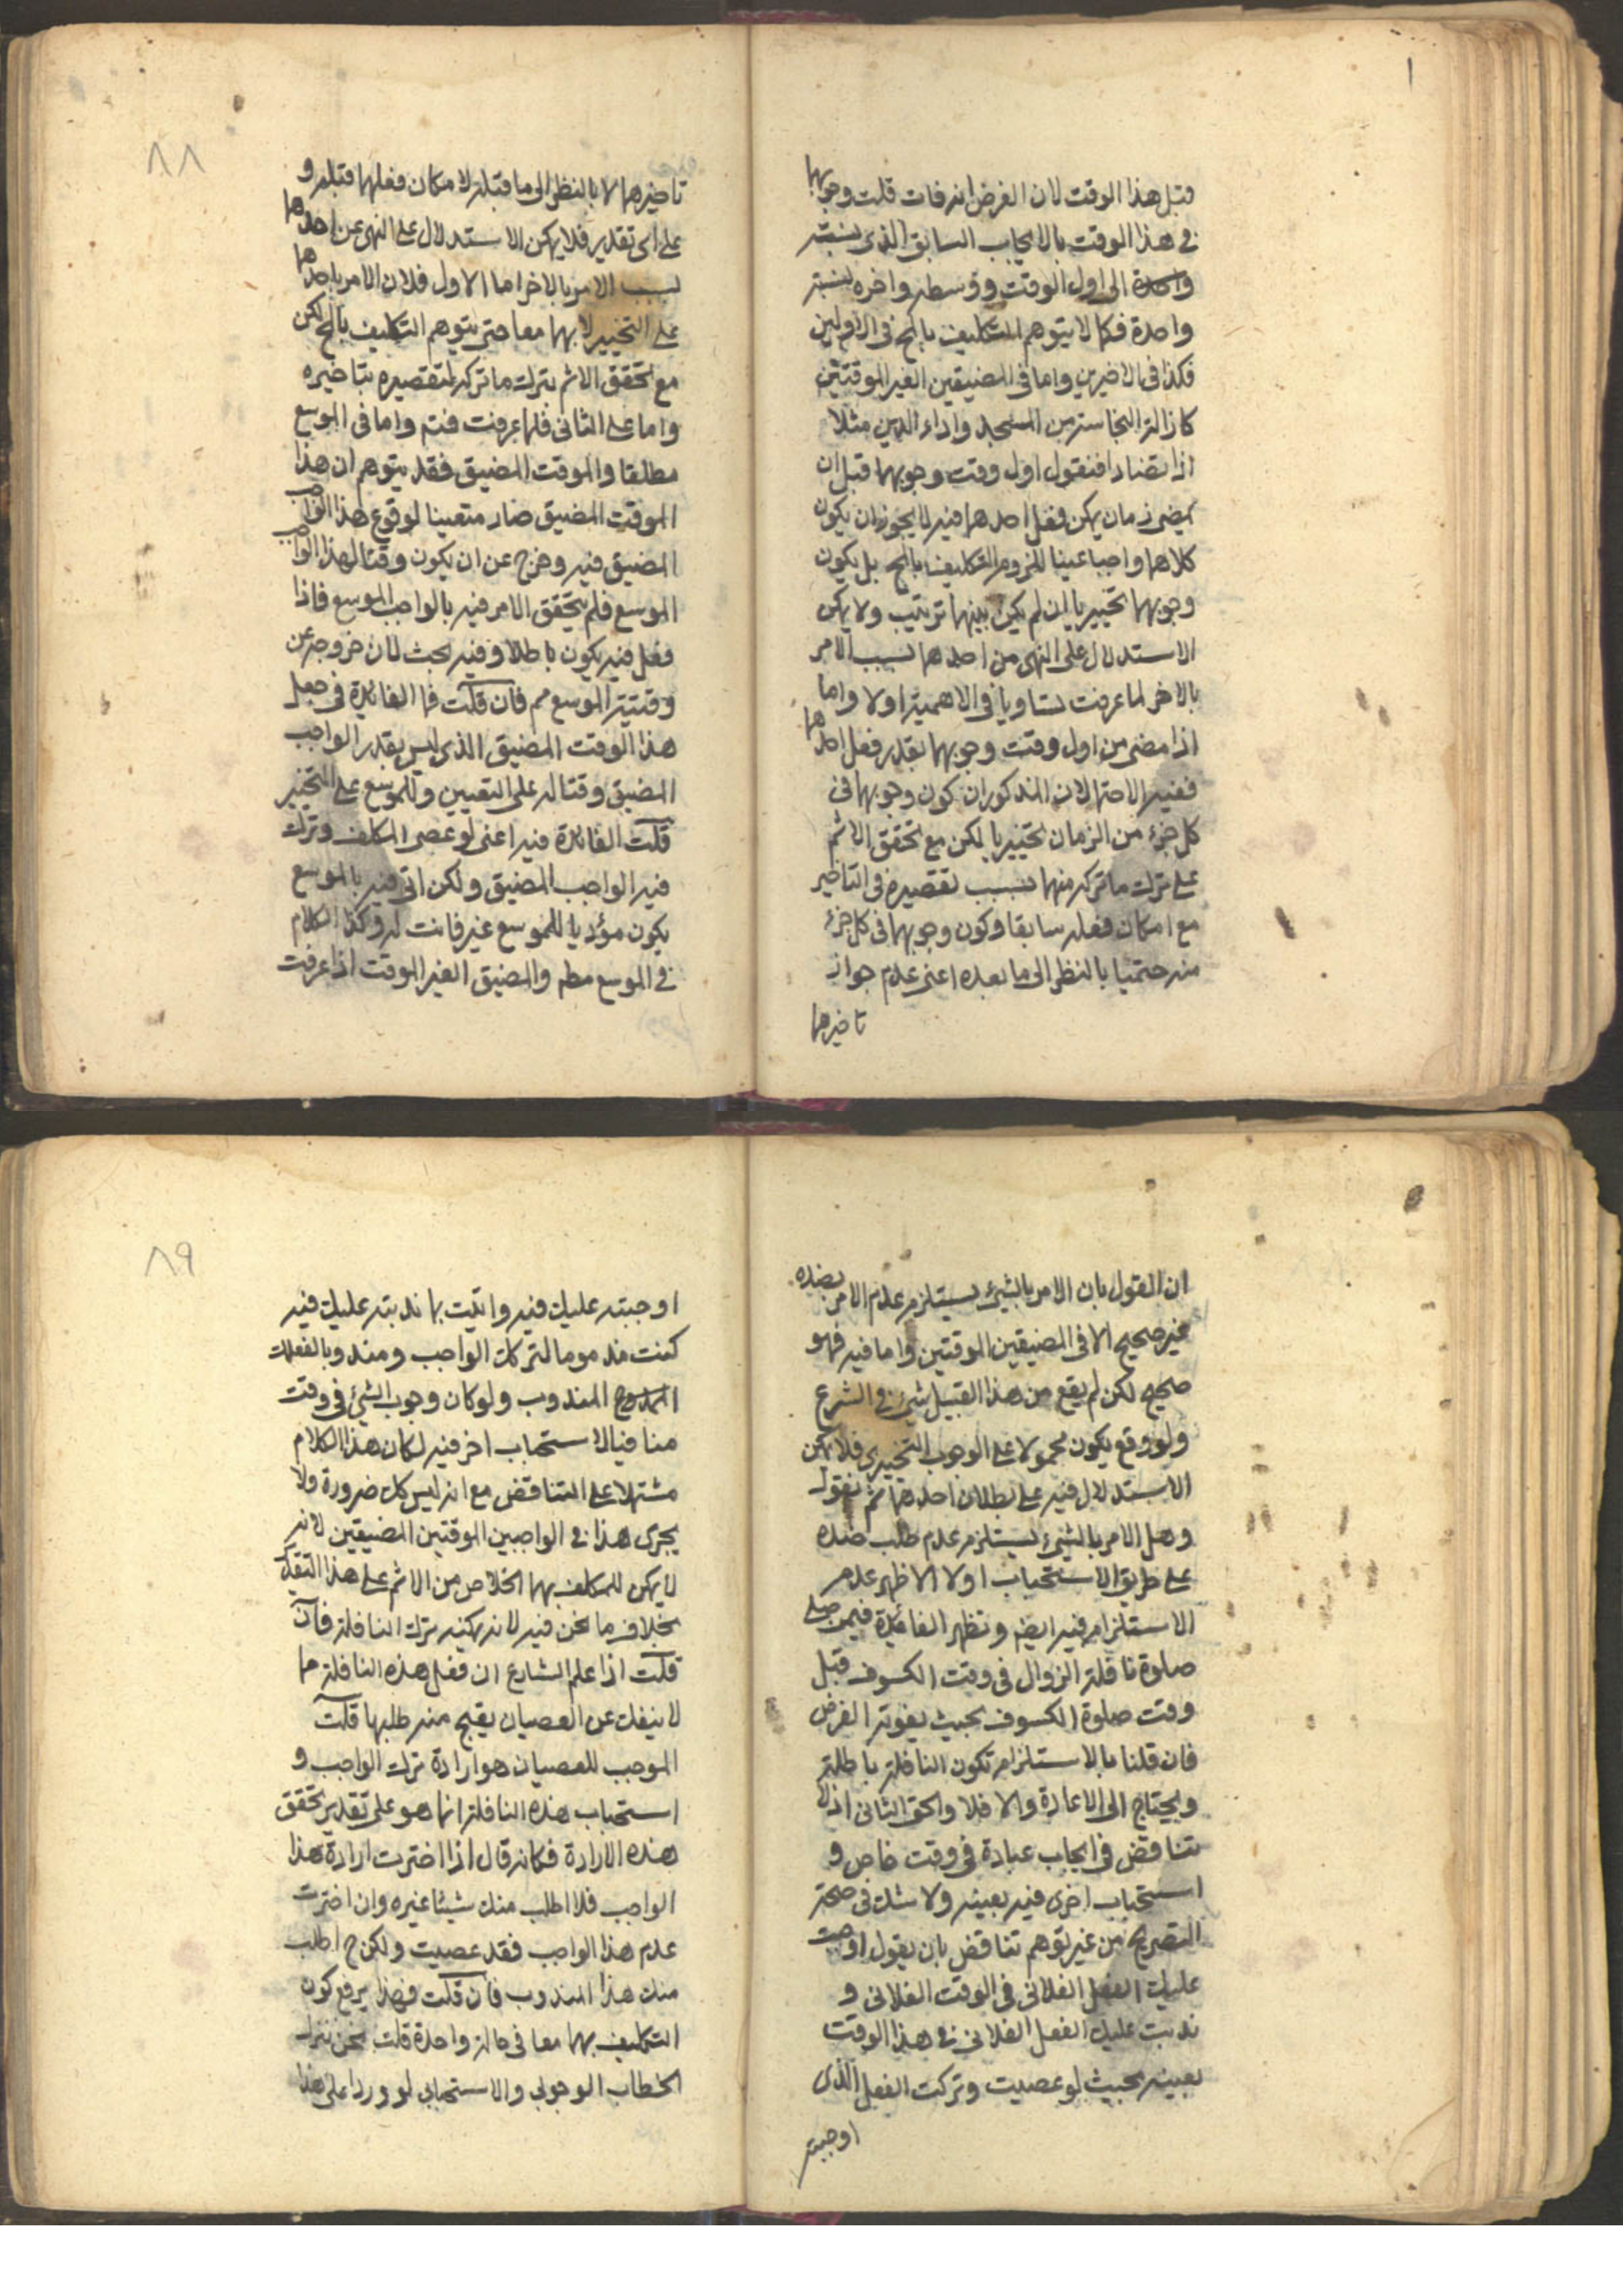 قبل هذا الوقت لان الفرض انه فات قلت وجوبهما
في هذا الوقت بالايجاب السابق الذى نسبته
واحدة الى اول الوقت ووسطه واخره نسبته
واحدة فكما لا يتوهم التكليف بالمح في الاولين
فكذا في الاخيرين واما في المضيقين الغير الموقتين
كازالة النجاسة من المسجد واداء الدين مثلا
اذا تضادا فنقول اول وقت وجوبهما قبل ان
يمضى زمان يمكن فعل احدهما فيه لا يجوز ان يكون
كلاهما واجبا عينا للزوم التكليف بالمح بل يكون
وجوبهما تخييريا ان لم يكن بينهما ترتيب ولا يمكن
الاستدلال على النهى من احدهما بسبب الامر
بالاخر لما عرفت تساويا في الاهمية اولا واما
اذا مضى من اول وقت وجوبهما بقدر فعل احدهما
ففيه الاحتمالان المذكوران كون وجوبهما في
كل جزء من الزمان تخييريا لكن مع تحقق الاثم
على ترك ما تركه منهما بسبب تقصيره في التاخير
مع امكان فعله سابقا وكون وجوبهما في كل جزء
منه حتميا بالنظر الى ما بعده اعنى عدم جواز
تاخيرهما
٨٨
تاخيرهما لا بالنظر الى ما قبله لامكان فعلهما قبله و
على اى تقدير فلا يمكن الاستدلال على النهى عن احدهما
بسبب الامر بالاخر اما الاول فلان الامر باحدهما
على التخيير لا بهما معا حتى يتوهم التكليف بالمح لكن
مع تحقق الاثم بترك ما تركه لتقصيره بتاخيره
واما على الثانى فلما عرفت فتم واما في الموسع
مطلقا والموقت المضيق فقد يتوهم ان هذا
الموقت المضيق صار متعينا لوقوع هذا الواجب
المضيق فيه وخرج عن ان يكون وقتا لهذا الواجب
الموسع فلم يتحقق الامر فيه بالواجب الموسع فاذا
فعل فيه يكون باطلا وفيه بحث لان خروجه عن
وقتية الموسع مم فان قلت فما الفائدة في جعل
هذا الوقت المضيق الذى ليس بقدر الواجب
المضيق وقتا له على التعيين وللموسع على التخيير
قلت الفائدة فيه اعنى لو عصى المكلف وترك
فيه الواجب المضيق ولكن اتى فيه بالموسع
يكون مؤديا للموسع غير فائت له وكذا الكلام
في الموسع مطم والمضيق الغير الموقت اذا عرفت
ان القول بان الامر بالشئ يستلزم عدم الامر بضده
غير صحيح الا في المضيقين الموقتين واما فيه فهو
صحيح لكن لم يقع من هذا القبيل شئ في الشرع
ولو وقع يكون محمولا على الوجوب التخييرى فلا يمكن
الاستدلال فيه على بطلان احدهما ثم نقول
وهل الامر بالشئ يستلزم عدم طلب ضده
على طريق الاستحباب اولا الاظهر عدم
الاستلزام فيه ايضم وتظهر الفائدة فيمن صلى
صلوة نافلة الزوال في وقت الكسوف قبل
وقت صلوة الكسوف بحيث يفوته الفرض
فان قلنا بالاستلزام تكون النافلة باطلة
ويحتاج الى الاعادة والا فلا والحق الثانى اذ لا
تناقض في ايجاب عبادة في وقت خاص و
استحباب اخرى فيه بعينه ولا شك في صحة
التصريح من غير توهم تناقض بان يقول اوجبت
عليك الفعل الفلانى في الوقت الفلانى و
ندبت عليك الفعل الفلانى في هذا الوقت
بعينه بحيث لو عصيت وتركت الفعل الذى
اوجبته
٨٩
اوجبته عليك فيه واتيت بما ندبته عليك فيه
كنت مذموما لتركك الواجب ومندوبا لفعلك
المندوب ولو كان وجوب الشئ في وقت
منافيا لاستحباب اخر فيه لكان هذا الكلام
مشتملا على التناقض مع انه ليس كك ضرورة ولا
يجرى هذا في الواجبين الموقتين المضيقين لانه
لا يمكن للمكلف بهما الخلاص من الاثم على هذا التقدير
بخلاف ما نحن فيه لانه يمكنه ترك النافلة فان
قلت اذا علم الشارع ان فعل هذه النافلة مما
لا ينفك عن العصيان يقبح منه طلبها قلت
الموجب للعصيان هو ارادة ترك الواجب و
استحباب هذه النافلة انما هو على تقدير تحقق
هذه الارادة فكانه قال اذا اخترت ارادة هذا
الواجب فلا اطلب منك شيئا غيره وان اخترت
عدم هذا الواجب فقد عصيت ولكن ح اطلب
منك هذا المندوب فان قلت فهذا يرفع كون
التكليف بهما معا في حالة واحدة قلت نحن ننزل
الخطاب الوجوبى والاستحبابى لو وردا على هذا